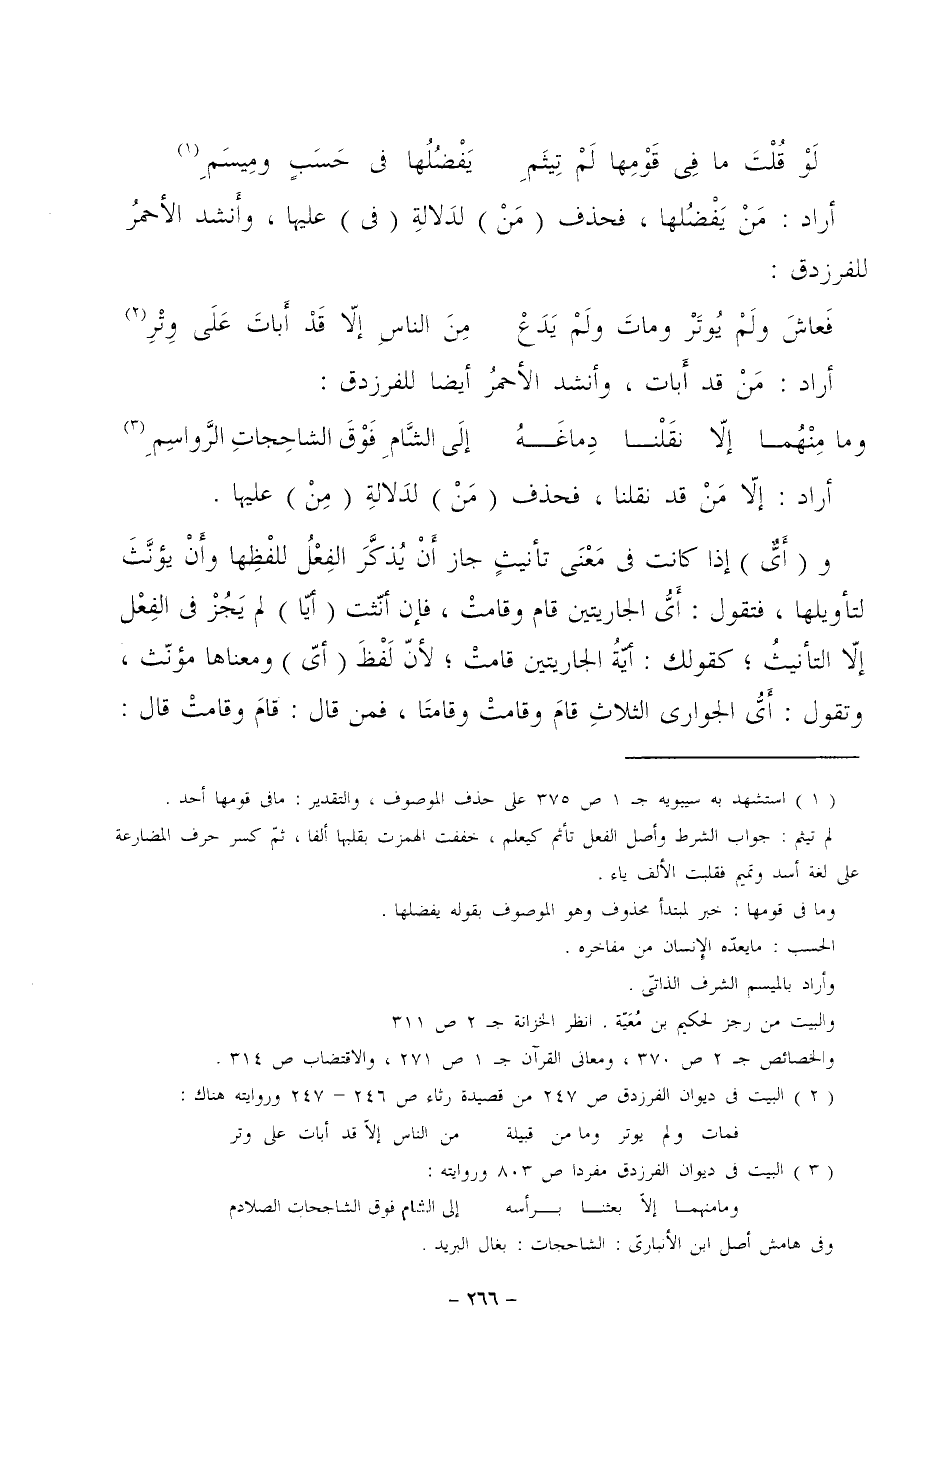 لَوْ قُلْتَ ما فِى قَوْمِها لَمْ تِيثَمِ يَفْضُلُها فى حَسَبٍ ومِيسَمِ (١)
أراد : مَنْ يَفْضُلها ، فحذف ( مَنْ ) لدَلالةِ ( فى ) عليها ، وأَنشد الأحمرُ
للفرزدق :
فَعاشَ ولَمْ يُوتَرْ وماتَ ولَمْ يَدَعْ مِنَ الناسِ إلّا قَدْ أَباتَ عَلَى وِتْرِ (٢)
أراد : مَنْ قد أَبات ، وأنشد الأحمرُ أيضا للفرزدق :
وما مِنْهُمـا إلّا نقَلْنـا دِماغَـهُ إلَى الشَّامِ فَوْقَ الشاحِجاتِ الرَّواسِمِ (٣)
أراد : إلّا مَنْ قد نقلنا ، فحذف ( مَنْ ) لدَلالةِ ( مِنْ ) عليها .
و ( أَىٌّ ) إذا كانت فى مَعْنَى تأنيثٍ جاز أَنْ يُذكَّرَ الفِعْلُ للفْظِها وأَنْ يؤنَّثَ
لتأويلها ، فتقول : أَىُّ الجاريتين قام وقامتْ ، فإن أنّثت ( أيّا ) لم يَجُزْ فى الفِعْل
إلّا التأنيثُ ؛ كقولك : أيّةُ الجاريتين قامتْ ؛ لأنّ لَفْظَ ( أىّ ) ومعناها مؤنّث ،
وتقول : أَىُّ الجوارى الثلاثِ قامَ وقامتْ وقامتَا ، فمن قال : قامَ وقامتْ قال :
( ١ ) استشهد به سيبويه جـ ١ ص ٣٧٥ على حذف الموصوف ، والتقدير : مافى قومها أحد .
لم تيثم : جواب الشرط وأصل الفعل تأثم كيعلم ، خففت الهمزت بقلبها ألفا ، ثمّ كسر حرف المضارعة
على لغة أسد وتميم فقلبت الألف ياء .
وما فى قومها : خبر لمبتدأ محذوف وهو الموصوف بقوله يفضلها .
الحسب : مايعدّه الإنسان من مفاخره .
وأراد بالميسم الشرف الذاتّى .
والبيت من رجز لحكيم بن مُعَيّة . انظر الخزانة جـ ٢ ص ٣١١
والخصائص جـ ٢ ص ٣٧٠ ، ومعانى القرآن جـ ١ ص ٢٧١ ، والاقتضاب ص ٣١٤ .
( ٢ ) البيت فى ديوان الفرزدق ص ٢٤٧ من قصيدة رثاء ص ٢٤٦ – ٢٤٧ وروايته هناك :
فمات ولم يوتر وما من قبيلة من الناس إلاّ قد أبات على وتر
( ٣ ) البيت فى ديوان الفرزدق مفردا ص ٨٠٣ وروايته :
ومامنهمـا إلاّ بعثنـا بـرأسه إلى الشام فوق الشاحجات الصلادم
وفى هامش أصل ابن الأنبارىّ : الشاحجات : بغال البريد .
– ٢٦٦ –